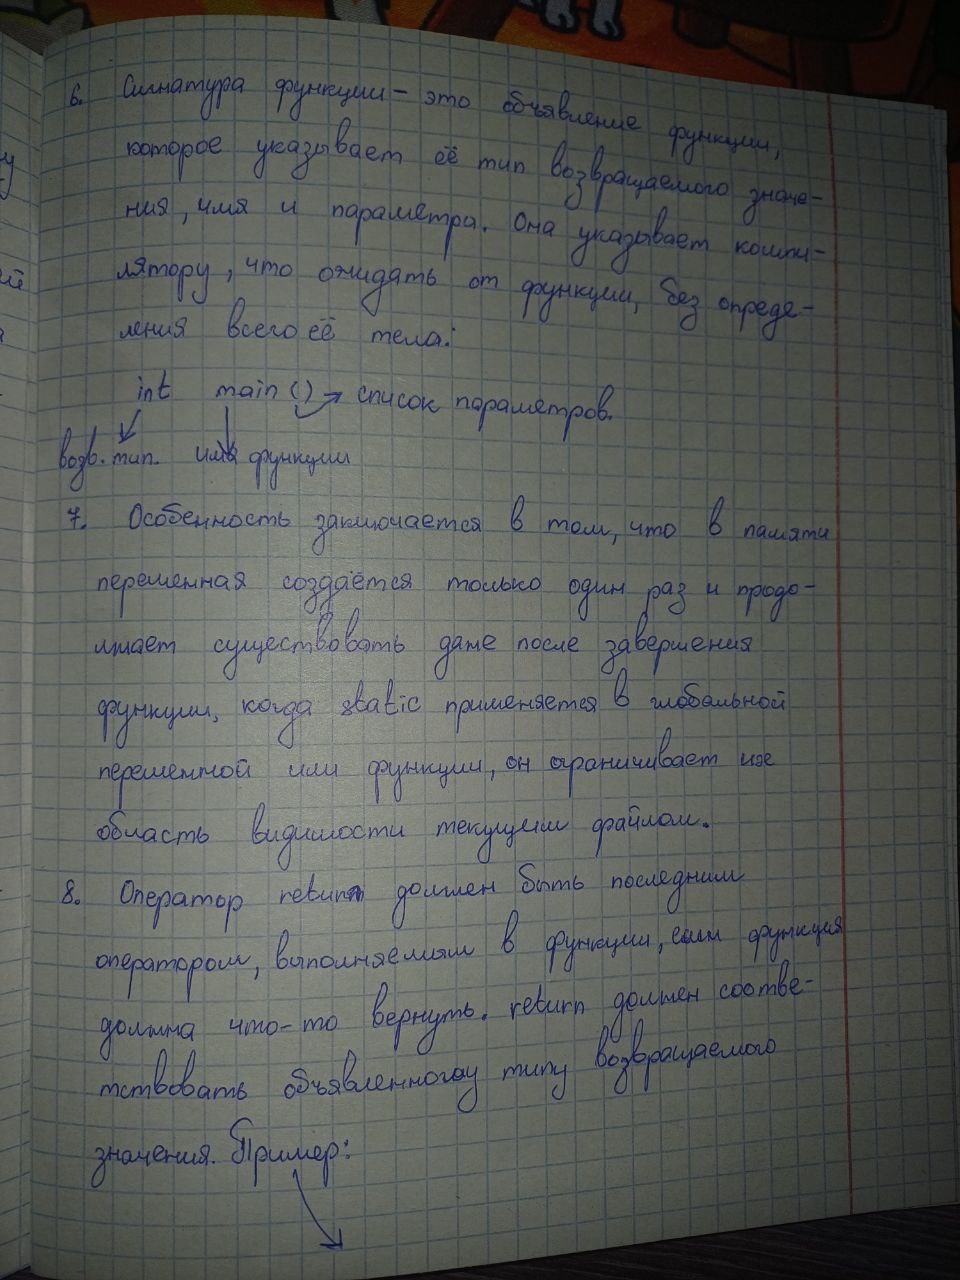 6. Сигнатура функции - это объявление функции,
которое указывает её тип возвращаемого значе-
ния, имя и параметра. Она указывает компи-
лятору, что ожидать от функции, без опреде-
ления всего её тела:
int main () → список параметров.
возв. тип. имя функции
7. Особенность заключается в том, что в памяти
переменная создаётся только один раз и продо-
лжает существовать даже после завершения
функции, когда static применяется в глобальной
переменной или функции, он ограничивает их
область видимости текущим файлом.
8. Оператор return должен быть последним
оператором, выполняемым в функции, если функция
должна что-то вернуть. return должен соотве-
тствовать объявленному типу возвращаемого
значения. Пример: